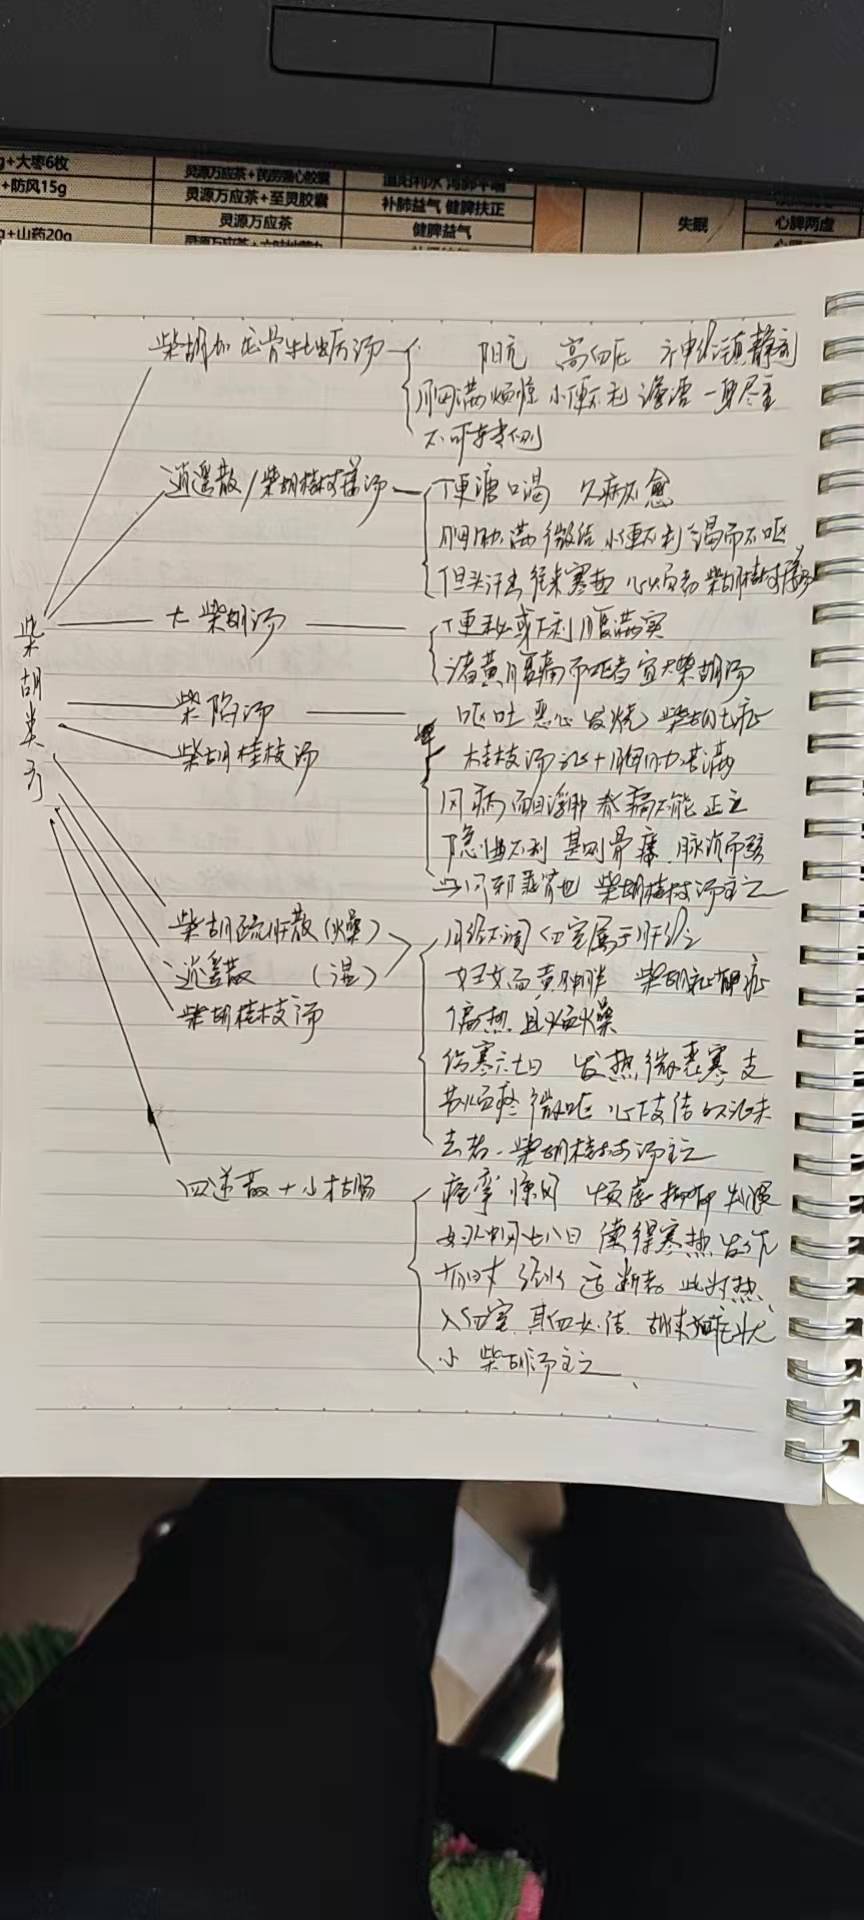 g+大枣6枚
灵源万应茶+民房强心胶囊
温阳利水 泻肺平喘
+防风15g
灵源万应茶+至灵胶囊
补肺益气 健脾扶正
g+山药20g
灵源万应茶
健脾益气
失眠
心脾两虚
柴胡类方
柴胡加龙骨牡蛎汤
阳亢 高血压 神经镇静剂
胸满烦惊 小便不利 谵语 一身尽重
不可转侧
逍遥散/柴胡桂枝干姜汤
便溏口渴 久病不愈
胸胁满微结 小便不利 渴而不呕
但头汗出 往来寒热 心烦者 柴胡桂枝干姜汤
大柴胡汤
便秘或下利 腹满实
诸黄腹痛而呕者 宜大柴胡汤
柴陷汤
呕吐 恶心 发烧 柴胡
柴胡桂枝汤
桂枝汤证+胸胁苦满
风病面目浮肿 脊痛不能正立
隐曲不利 甚则骨痿 脉沉而弦
柴胡桂枝汤主之
柴胡疏肝散(燥)
月经不调 血室属于肝经
逍遥散 (湿)
妇女面黄肿胖 柴胡
柴胡桂枝汤
偏热 且烦燥
伤寒六七日 发热微恶寒 支
节烦疼 微呕 心下支结 外证未
去者、柴胡桂枝汤主之
四逆散+小柴胡
痉挛 惊风
妇人中风七八日 续得寒热 发作
有时 经水适断者 此为热
入血室 其血必结 故使如疟状
小柴胡汤主之